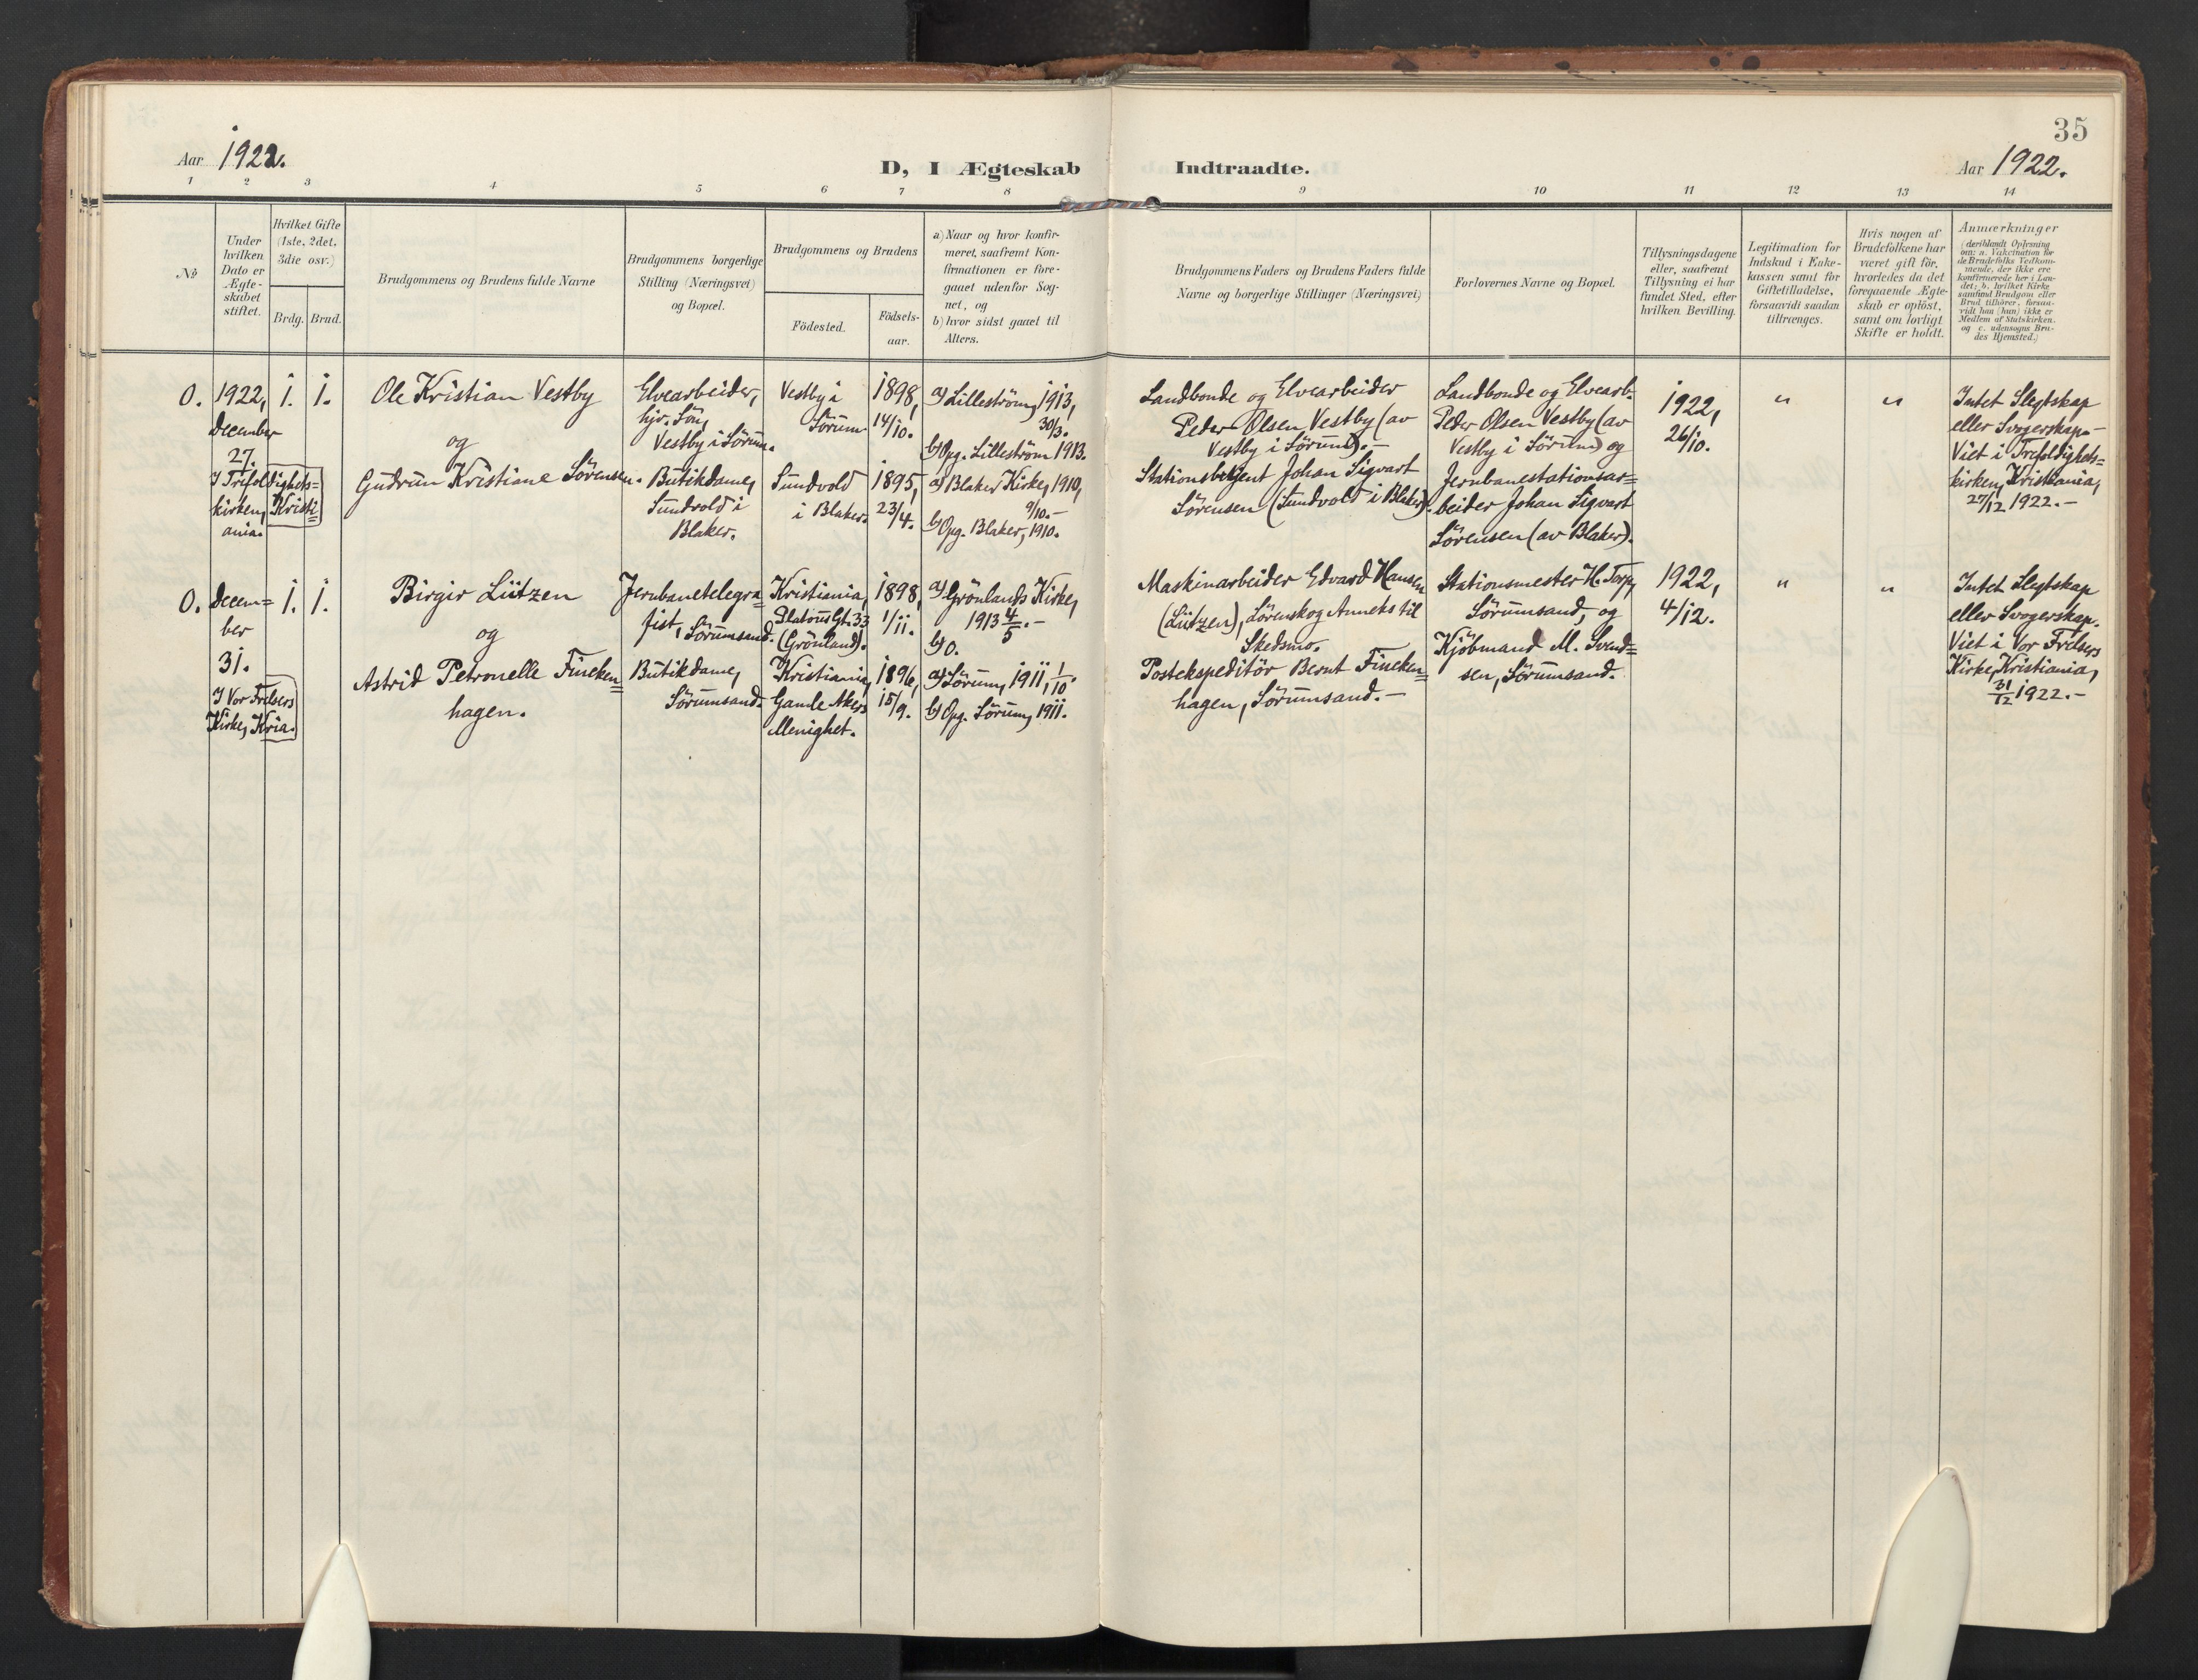 35
Aar 1922.
D, I Ægteskab
Indtraadte.
Aar 1922.
1 2 3 4 5 6 7 8 9 10 11 12 13 14
No
Under hvilken Dato er Ægteskabet stiftet.
Hvilket Gifte (1ste, 2det, 3die osv.)
Brdg. Brud.
Brudgommens og Brudens fulde Navne
Brudgommens borgerlige
Stilling (Næringsvei)
og Bopæl.
Brudgommens og Brudens
Födested.
Födsels-
aar.
a) Naar og hvor konfir-
meret, saafremt Kon-
firmationen er fore-
gaaet udenfor Sog-
net, og
b) hvor sidst gaaet til
Alters.
Brudgommens Faders og Brudens Faders fulde
Navne og borgerlige Stillinger (Næringsvei)
Forlovernes Navne og Bopæl.
Tillysningsdagene
eller, saafremt
Tillysning ei har
fundet Sted, efter
hvilken Bevilling.
Legitimation for
Indskud i Enke-
kassen samt for
Giftetilladelse,
forsaavidt saadan
tiltrænges.
Hvis nogen af
Brudefolkene har
været gift för,
hvorledes da det
foregaaende Ægte-
skab er oplöst,
samt om lovligt
Skifte er holdt.
Anmærkninger
(deriblandt Oplysning
om: a. Vakcination for
de Brudefolks Vedkom-
mende, der ikke ere
konfirmerede her i Lan-
det; b. hvilket Kirke-
samfund Brudgom eller
Brud tilhörer, forsaa-
vidt han (hun) ikke er
Medlem af Statskirken.
og c. udensogns Bru-
des Hjemsted.)
0.
1922,
December
27.
I Trefoldigheds=
kirken, Kristi=
ania.
1. 1.
Ole Kristian Vestby
og
Gudrun Kristiane Sörensen.
Elvearbeider,
hjv. Sön,
Vestby i Sörum.
Butikdame,
Sundvold i
Blaker.
Vestby i
Sörum
Sundvold
i Blaker.
1898,
14/10.
1895,
23/4.
a) Lilleström, 1913,
30/3.
b) Opg. Lilleström 1913.
a) Blaker Kirke, 1910,
9/10.-
b) Opg. Blaker, 1910.
Landbonde og Elvearbeider
Peder Olsen Vestby (av
Vestby i Sörum).-
Stationsbetjent Johan Sigvart
Sörensen (Sundvold i Blaker).
Landbonde og Elvearb.
Peder Olsen Vestby (av
Vestby i Sörum) og
Jernbanestationsar=
beider Johan Sigvart
Sörensen (av Blaker).
1922,
26/10.
"
"
Intet Slegtskap
eller Svogerskap.-
Viet i Trefoldigheds=
kirken, Kristiania,
27/12 1922.-
0.
Decem=
ber
31.
I Vor Frelsers
Kirke, Kria.
1. 1.
Birgir Lützen
og
Astrid Petronelle Fincken=
hagen.
Jernbanetelegra=
fist, Sörumsand.
Butikdame,
Sörumsand.
Kristiania,
Platous Gt. 33
(Grönland).
Kristiania,
Gamle Akers
Menighet.
1898,
1/11.
1896,
15/9.
a) Grönlands Kirke,
1913 4/5.-
b) 0.
a) Sörum, 1911, 1/10.
b) Opg. Sörum, 1911.
Maskinarbeider Edvard Hansen
(Lützen), Lörenskog Anneks til
Skedsmo.
Postekspeditör Bernt Fincken=
hagen, Sörumsand.-
Stationsmester H. Torp,
Sörumsand, og
Kjöbmand M. Svend=
sen, Sörumsand.
1922,
4/12.
"
"
Intet Slegtskap
eller Svogerskap.
Viet i Vor Frelsers
Kirke, Kristiania,
31/12 1922.-